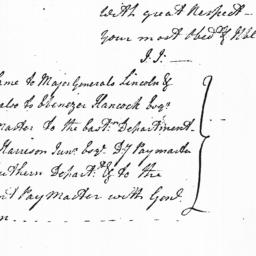 with great Respect—
Your most Obedt. & Hble
J. J. —
ame to Major Generals Lincoln &
also to Ebenezer Hancock Esqr.
Master to the Eastn. Department
Harrison Junr. Esqr. Dy Paymaster
uthern Departt. & to the
nt Pay Master with Genl.
n